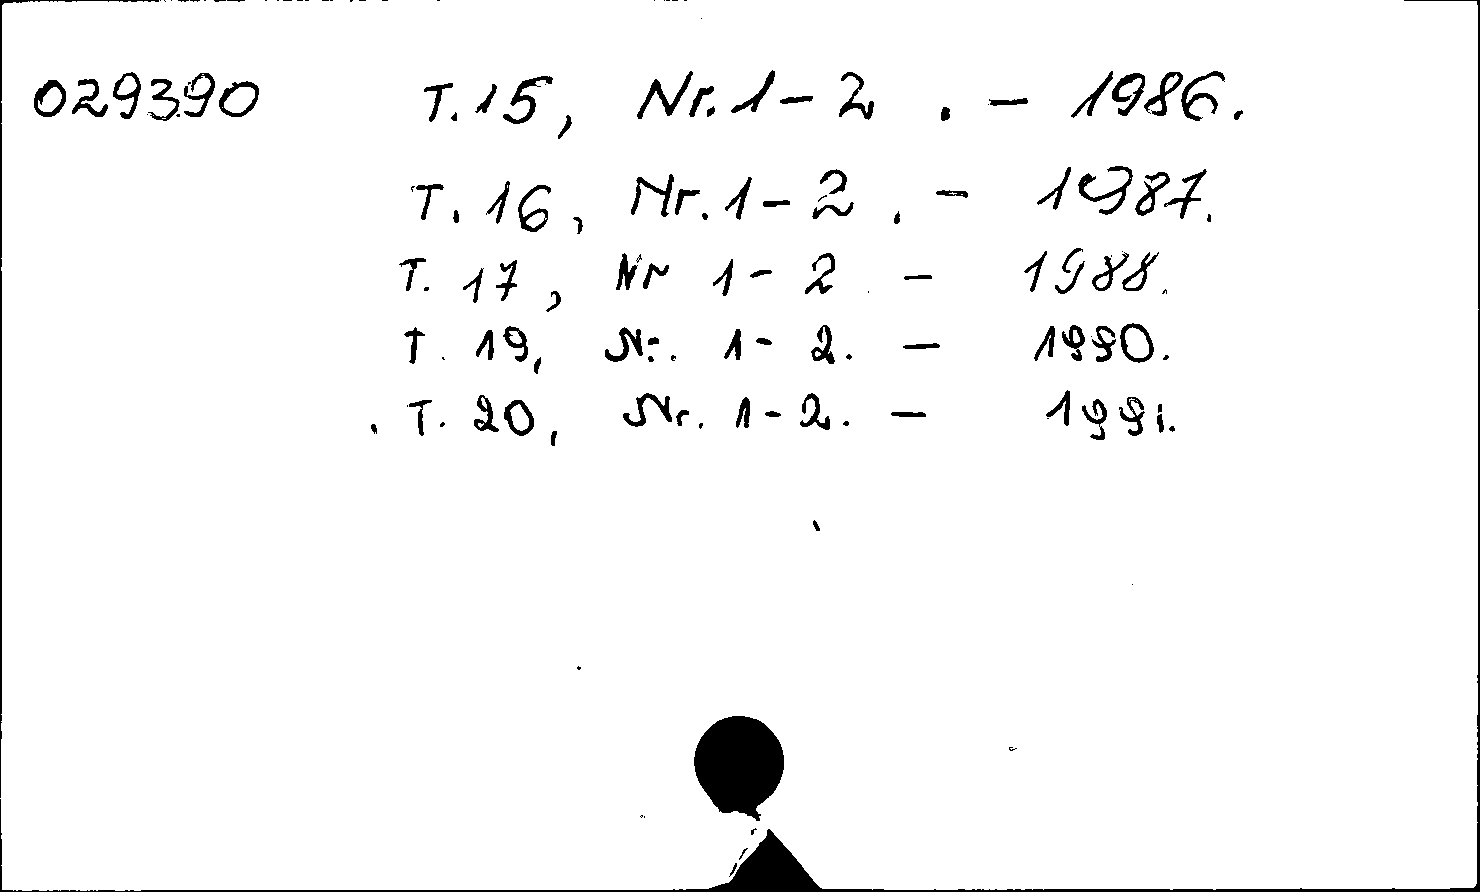 029390 T. 15, Nr. 1-2 . - 1986.
T. 16, Nr. 1-2 . - 1987.
T. 17, Nr 1-2 - 1988.
T. 19, Nr. 1-2. - 1990.
T. 20, Nr. 1-2. - 1991.